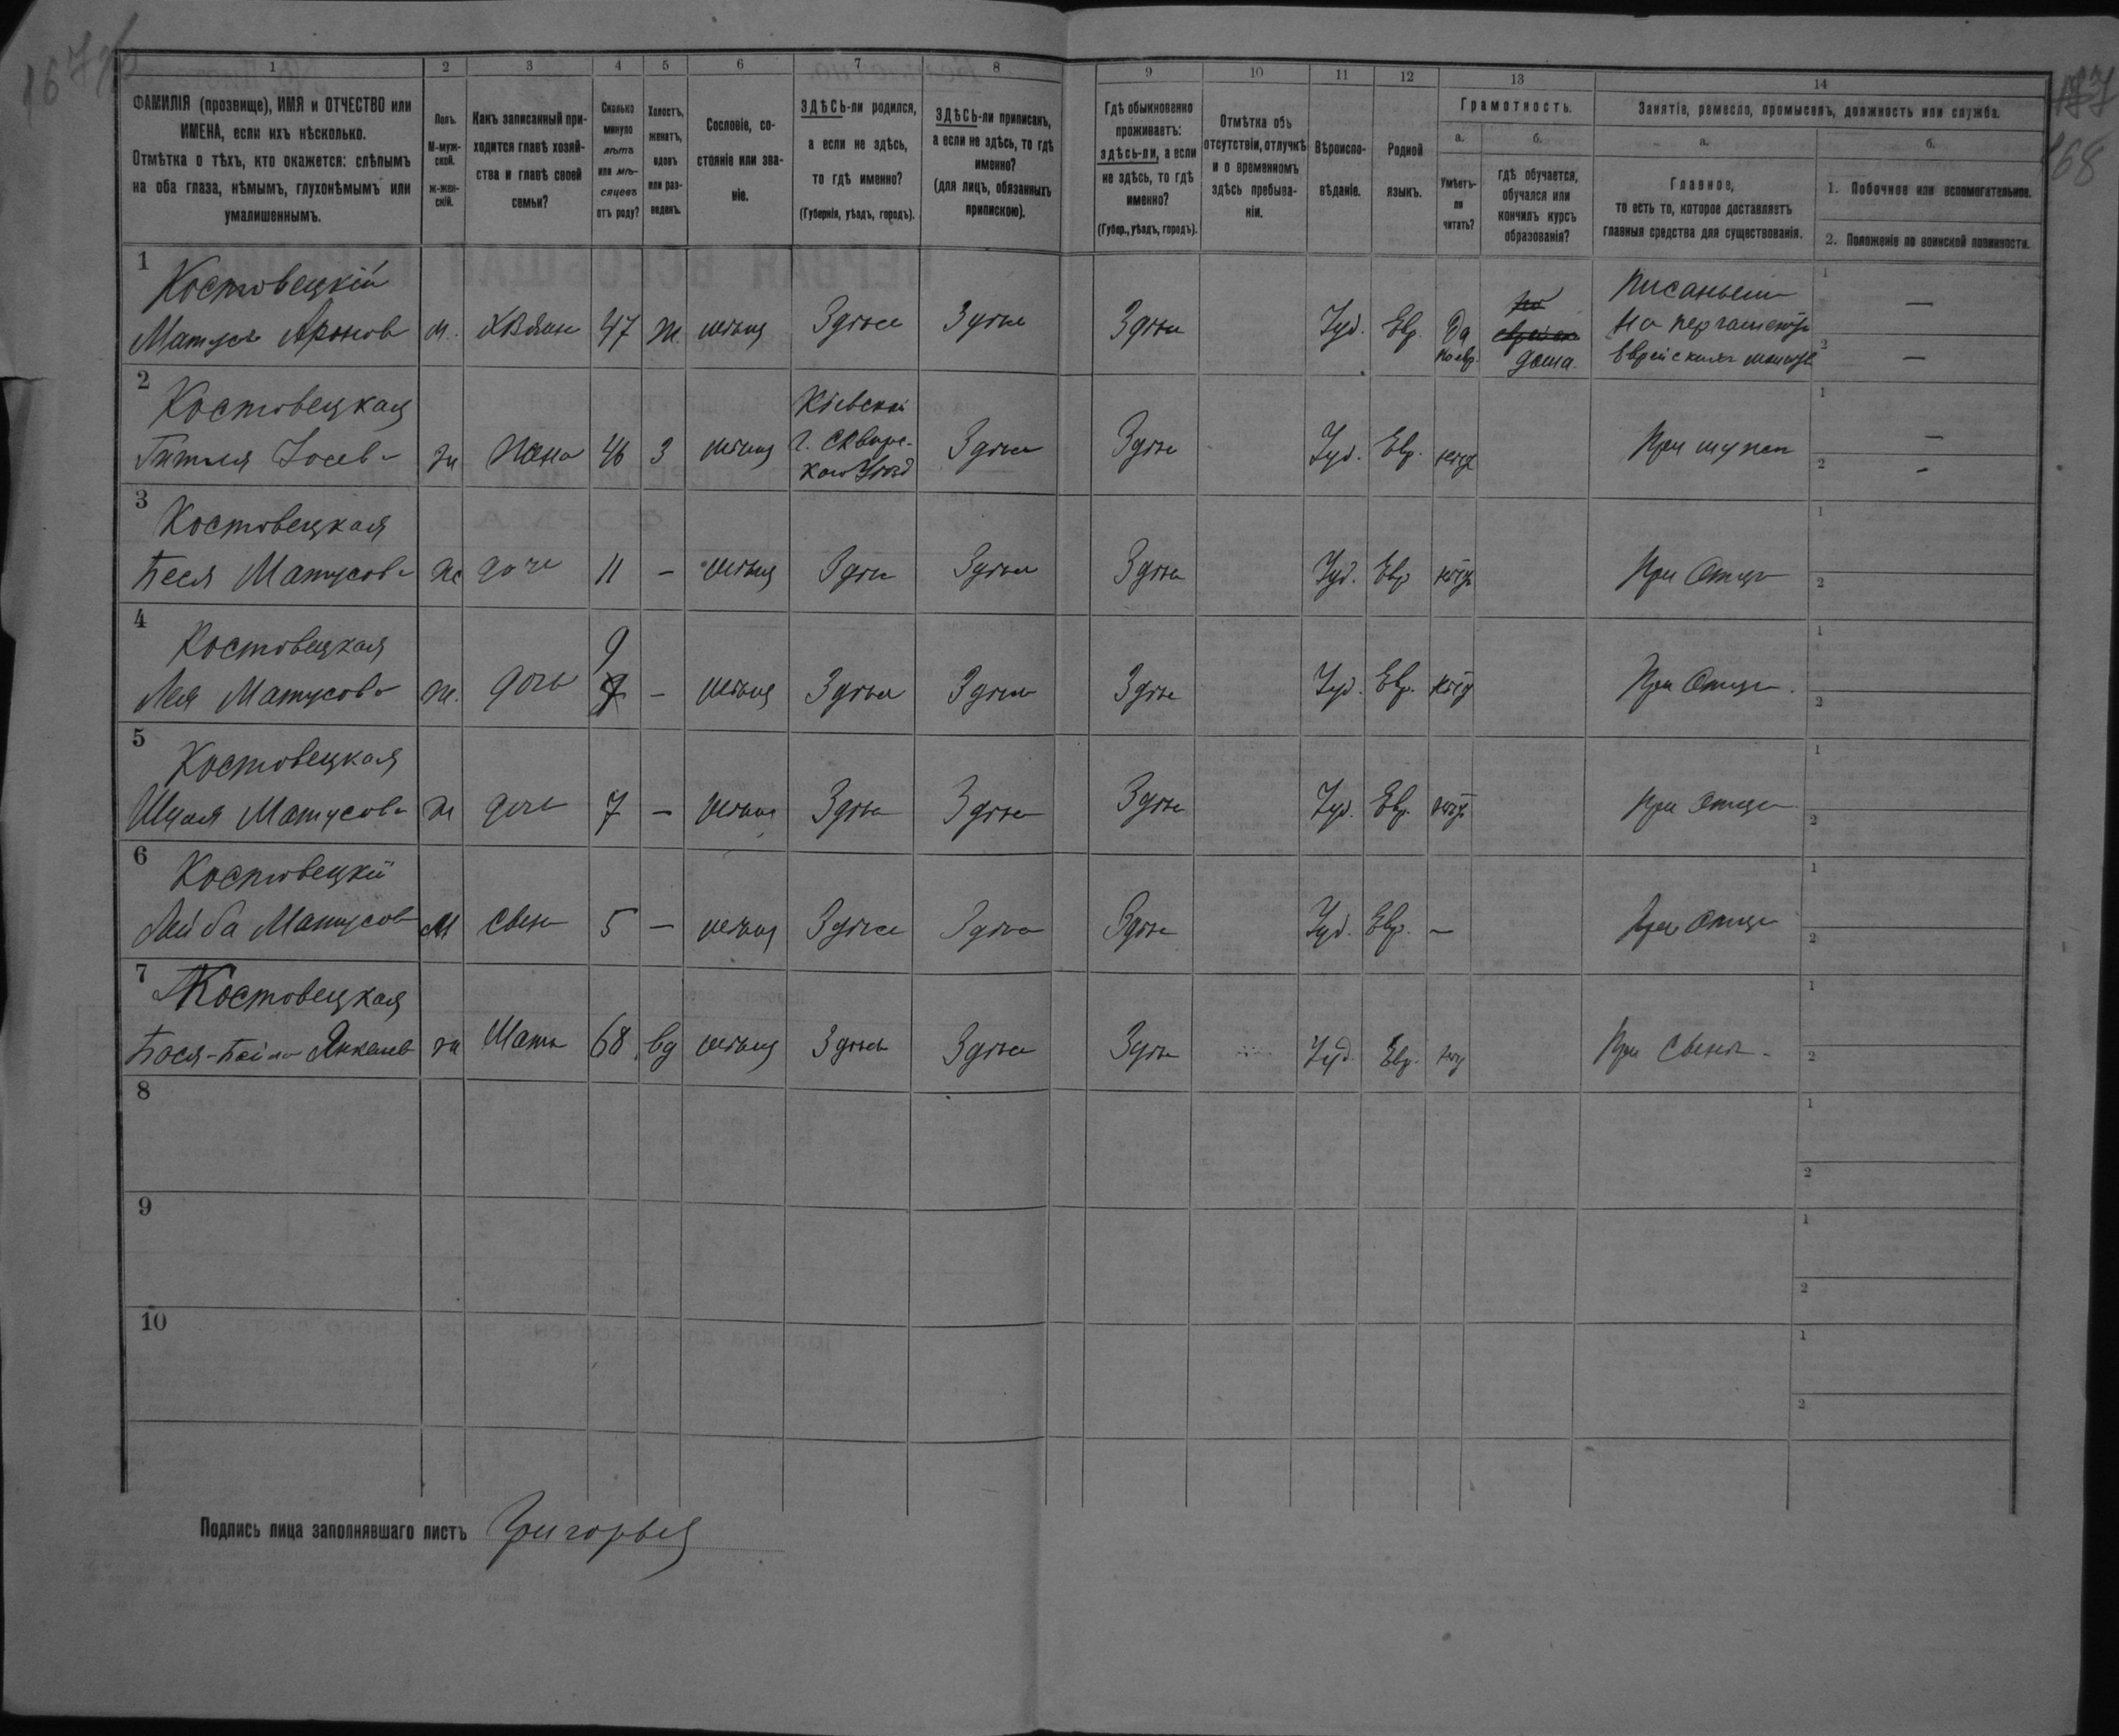 1 2 3 4 5 6 7 8 9 10 11 12 13 14
ФАМИЛІЯ (прозвище), ИМЯ и ОТЧЕСТВО или
ИМЕНА, если ихъ нѣсколько.
Отмѣтка о тѣхъ, кто окажется: слѣпымъ
на оба глаза, нѣмымъ, глухонѣмымъ или
умалишеннымъ.
Полъ.
М-муж-
ской.
ж-жен-
скій.
Какъ записанный при-
ходится главѣ хозяй-
ства и главѣ своей
семьи?
Сколько
минуло
лѣтъ
или мѣ-
сяцевъ
отъ роду?
Холостъ,
женатъ,
вдовъ
или раз-
веденъ.
Сословіе, со-
стояніе или зва-
ніе.
ЗДѢСЬ-ли родился,
а если не здѣсь,
то гдѣ именно?
(Губернія, уѣздъ, городъ).
ЗДѢСЬ-ли приписанъ,
а если не здѣсь, то гдѣ
именно?
(для лицъ, обязанныхъ
припискою).
Гдѣ обыкновенно
проживаетъ:
здѣсь-ли, а если
не здѣсь, то гдѣ
именно?
(Губер., уѣздъ, городъ).
Отмѣтка объ
отсутствіи, отлучкѣ
и о временномъ
здѣсь пребыва-
ніи.
Вѣроиспо-
вѣданіе.
Родной
языкъ.
Грамотность.
а.
Умѣетъ-
ли
читать?
б.
гдѣ обучается,
обучался или
кончилъ курсъ
образованія?
Занятіе, ремесло, промыселъ, должность или служба.
а.
Главное,
то есть то, которое доставляетъ
главныя средства для существованія.
б.
1. Побочное или вспомогательное.
2. Положеніе по воинской повинности.
1
Костовецкій
Матусъ Аронов м. 47 ж. Здѣсь Здѣсь Здѣсь Іуд. Евр. Да
по евр. дома
на
1 —
2 —
2
Костовецкая
Жена 46 З Кіевской
г. Сквирс-
Здѣсь Здѣсь Іуд. Евр. нѣтъ При мужѣ
1 —
2 -
3
Костовецкая
Бася Матусов ж дочь 11 — Здѣсь Здѣсь Здѣсь Іуд. Евр нѣтъ При Отцѣ
1
2
4
Костовецкая
Лея Матусова ж. дочь 9 — Здѣсь Здѣсь Здѣсь Іуд. Евр. нѣтъ При Отцѣ.
1
2
5
Костовецкая
Матусов ж дочь 7 — Здѣсь Здѣсь Здѣсь Іуд. Евр. нѣтъ При отцѣ
1
2
6
Костовецкій
Лейба Матусов м Сынъ 5 — Здѣсь Здѣсь Здѣсь Іуд. Евр. — При Отцѣ
1
2
7
Костовецкая
ж Мать 68 вд Здѣсь Здѣсь Здѣсь Іуд. Евр. нѣтъ При Сынѣ.
1
2
8
1
2
9
1
2
10
1
2
Подпись лица заполнявшаго листъ
168